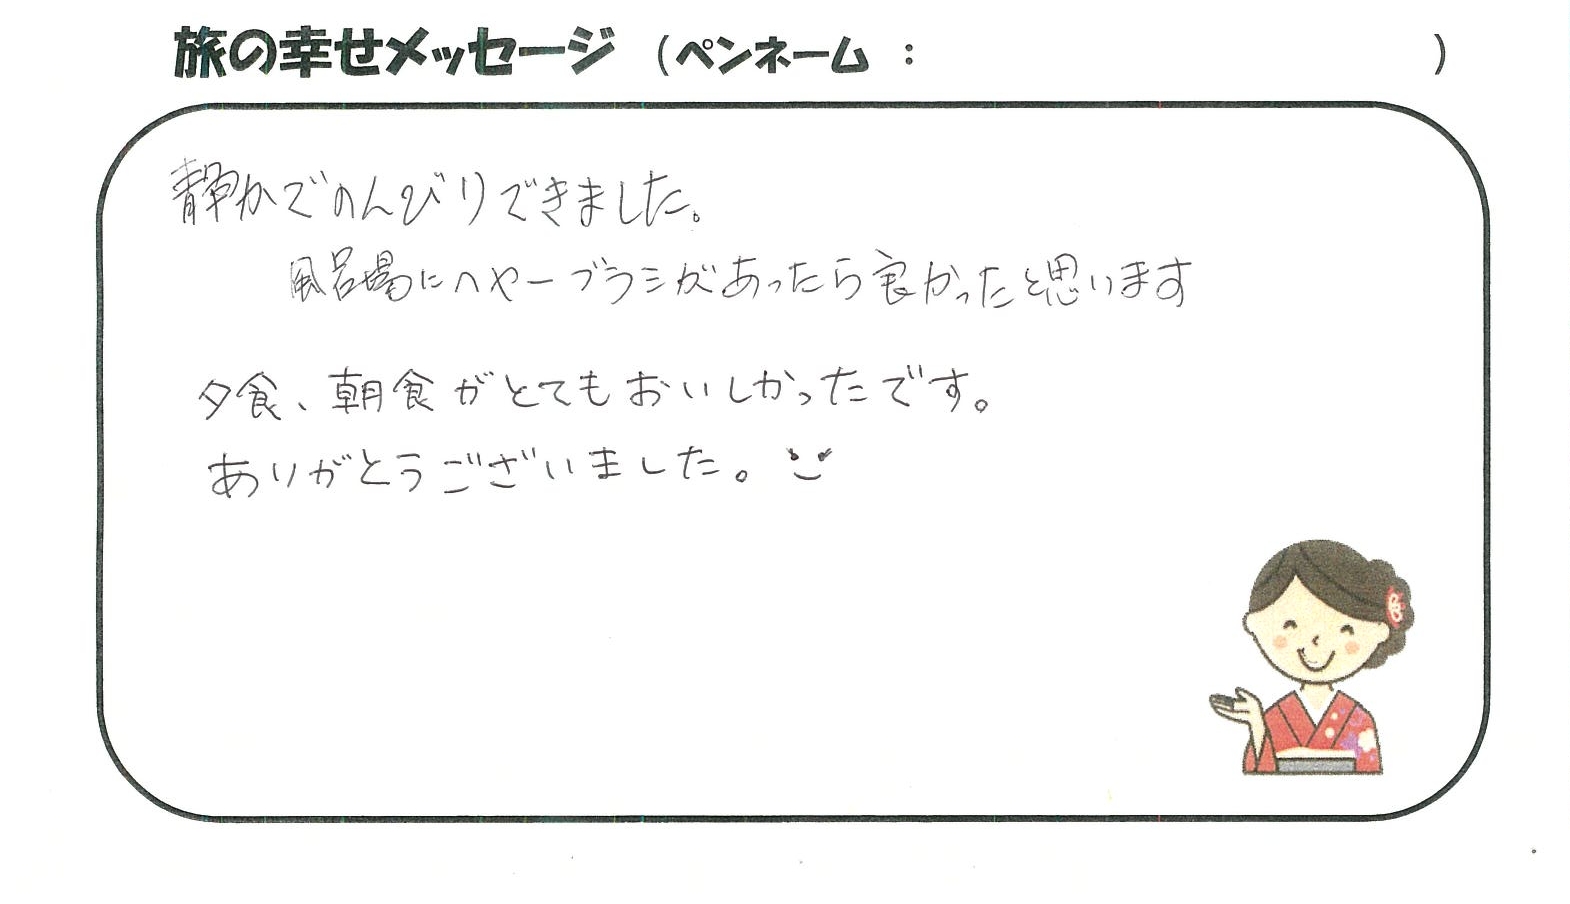 旅の幸せメッセージ （ペンネーム ： ）
静かでのんびりできました。
風呂場にヘヤーブラシがあったら良かったと思います
夕食、朝食がとてもおいしかったです。
ありがとうございました。